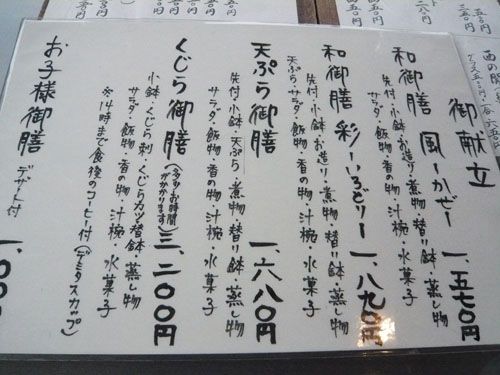 御献立
和御膳 風ーかぜー 一、五七〇円
先付・小鉢・お造り・煮物・替り鉢・蒸し物
サラダ・飯物・香の物・汁椀・水菓子
和御膳 彩ーいろどりー 一、八九〇円
先付・小鉢・お造り・煮物・替り鉢・蒸し物
天ぷら・サラダ・飯物・香の物・汁椀・水菓子
天ぷら御膳 一、六八〇円
先付・小鉢・天ぷら・煮物・替り鉢・蒸し物
サラダ・飯物・香の物・汁椀・水菓子
くじら御膳(多少お時間がかかります) 三、二〇〇円
小鉢・くじら刺・くじらカツ・替鉢・蒸し物
サラダ・飯物・香の物・汁椀・水菓子
※14時まで食後のコーヒー付(デミタスカップ)
お子様御膳 デザート付 一、〇〇